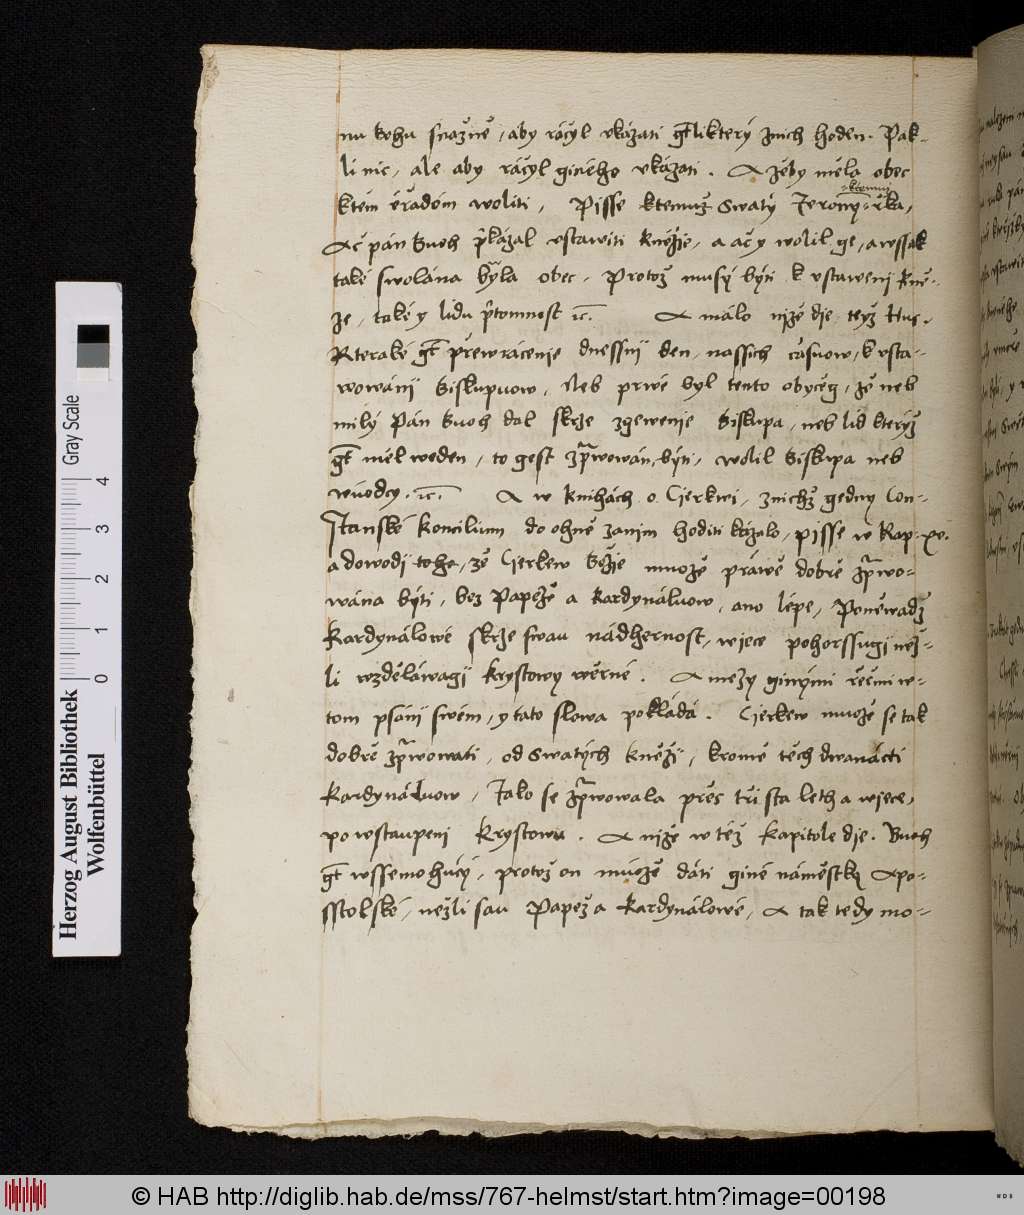 nu Bohu snažně, aby ráčyl vkázati gt̃likterý znich hoden. Pak-
li nic, ale aby ráčyl giného vkázati. A žéby měla obec
ktěm vřadóm woliti, Pisse ktemuž Swatý Jeroným řka,
Ač pán Buoh p̃kázal vstawiti kněžie, a ač y wolil ge, a wssak
také swolána byla obec. Protož musý býti k vstaweni kně-
ze, také y lidu p̃tomnost ꝛc̃. A málo niže die teyž Hus.
Kteraké gt̃ převrácenie dnessnij den, nassich čásuow, k vsta-
wowánij Biskupuow, Neb prwé byl tento obyčeg, že neb
milý Pán Buoh dal skrze zgewenie Biskupa, neb lid kterýž
gt̃ měl weden, to gest zp̃wowán, býti, wolil Biskupa neb
wuodcy. ꝛc̃. A w knihách o Cierkwi, znichž gedny Con-
stanské koncilium do ohně zanim hoditi kázalo, pisse w kap. xv.
a dowodij toho, že Cierkew Božie muože práwě dobře zp̃wo-
wána býti, bez Papeže a kardynáluow, ano lépe, Poněwadž
Kardynálowé skrze swau nádhernost, wiece pohorssugij než-
li wzděláwagij krystowy wěrné. A mezy ginými řečmi w-
tom psánij swém, y tato slowa pokládá. Cierkew muože se tak
dobře zp̃wowati, od Swatých kněžij, kromě těch dwanácti
Kardynáluow, Jako se zp̃wowala přes tři sta leth a wiece,
po wstaupeni Krystowu. A niže w též kapitole die. Buoh
gt̃ wssemohúcý, protož on muože dáti giné náměstky Apo-
sstolské, nežli sau Papež a Kardynálowé, A tak tedy mo-
Herzog August Bibliothek
Wolfenbüttel
0 1 2 3 4
Gray Scale
© HAB http://diglib.hab.de/mss/767-helmst/start.htm?image=00198